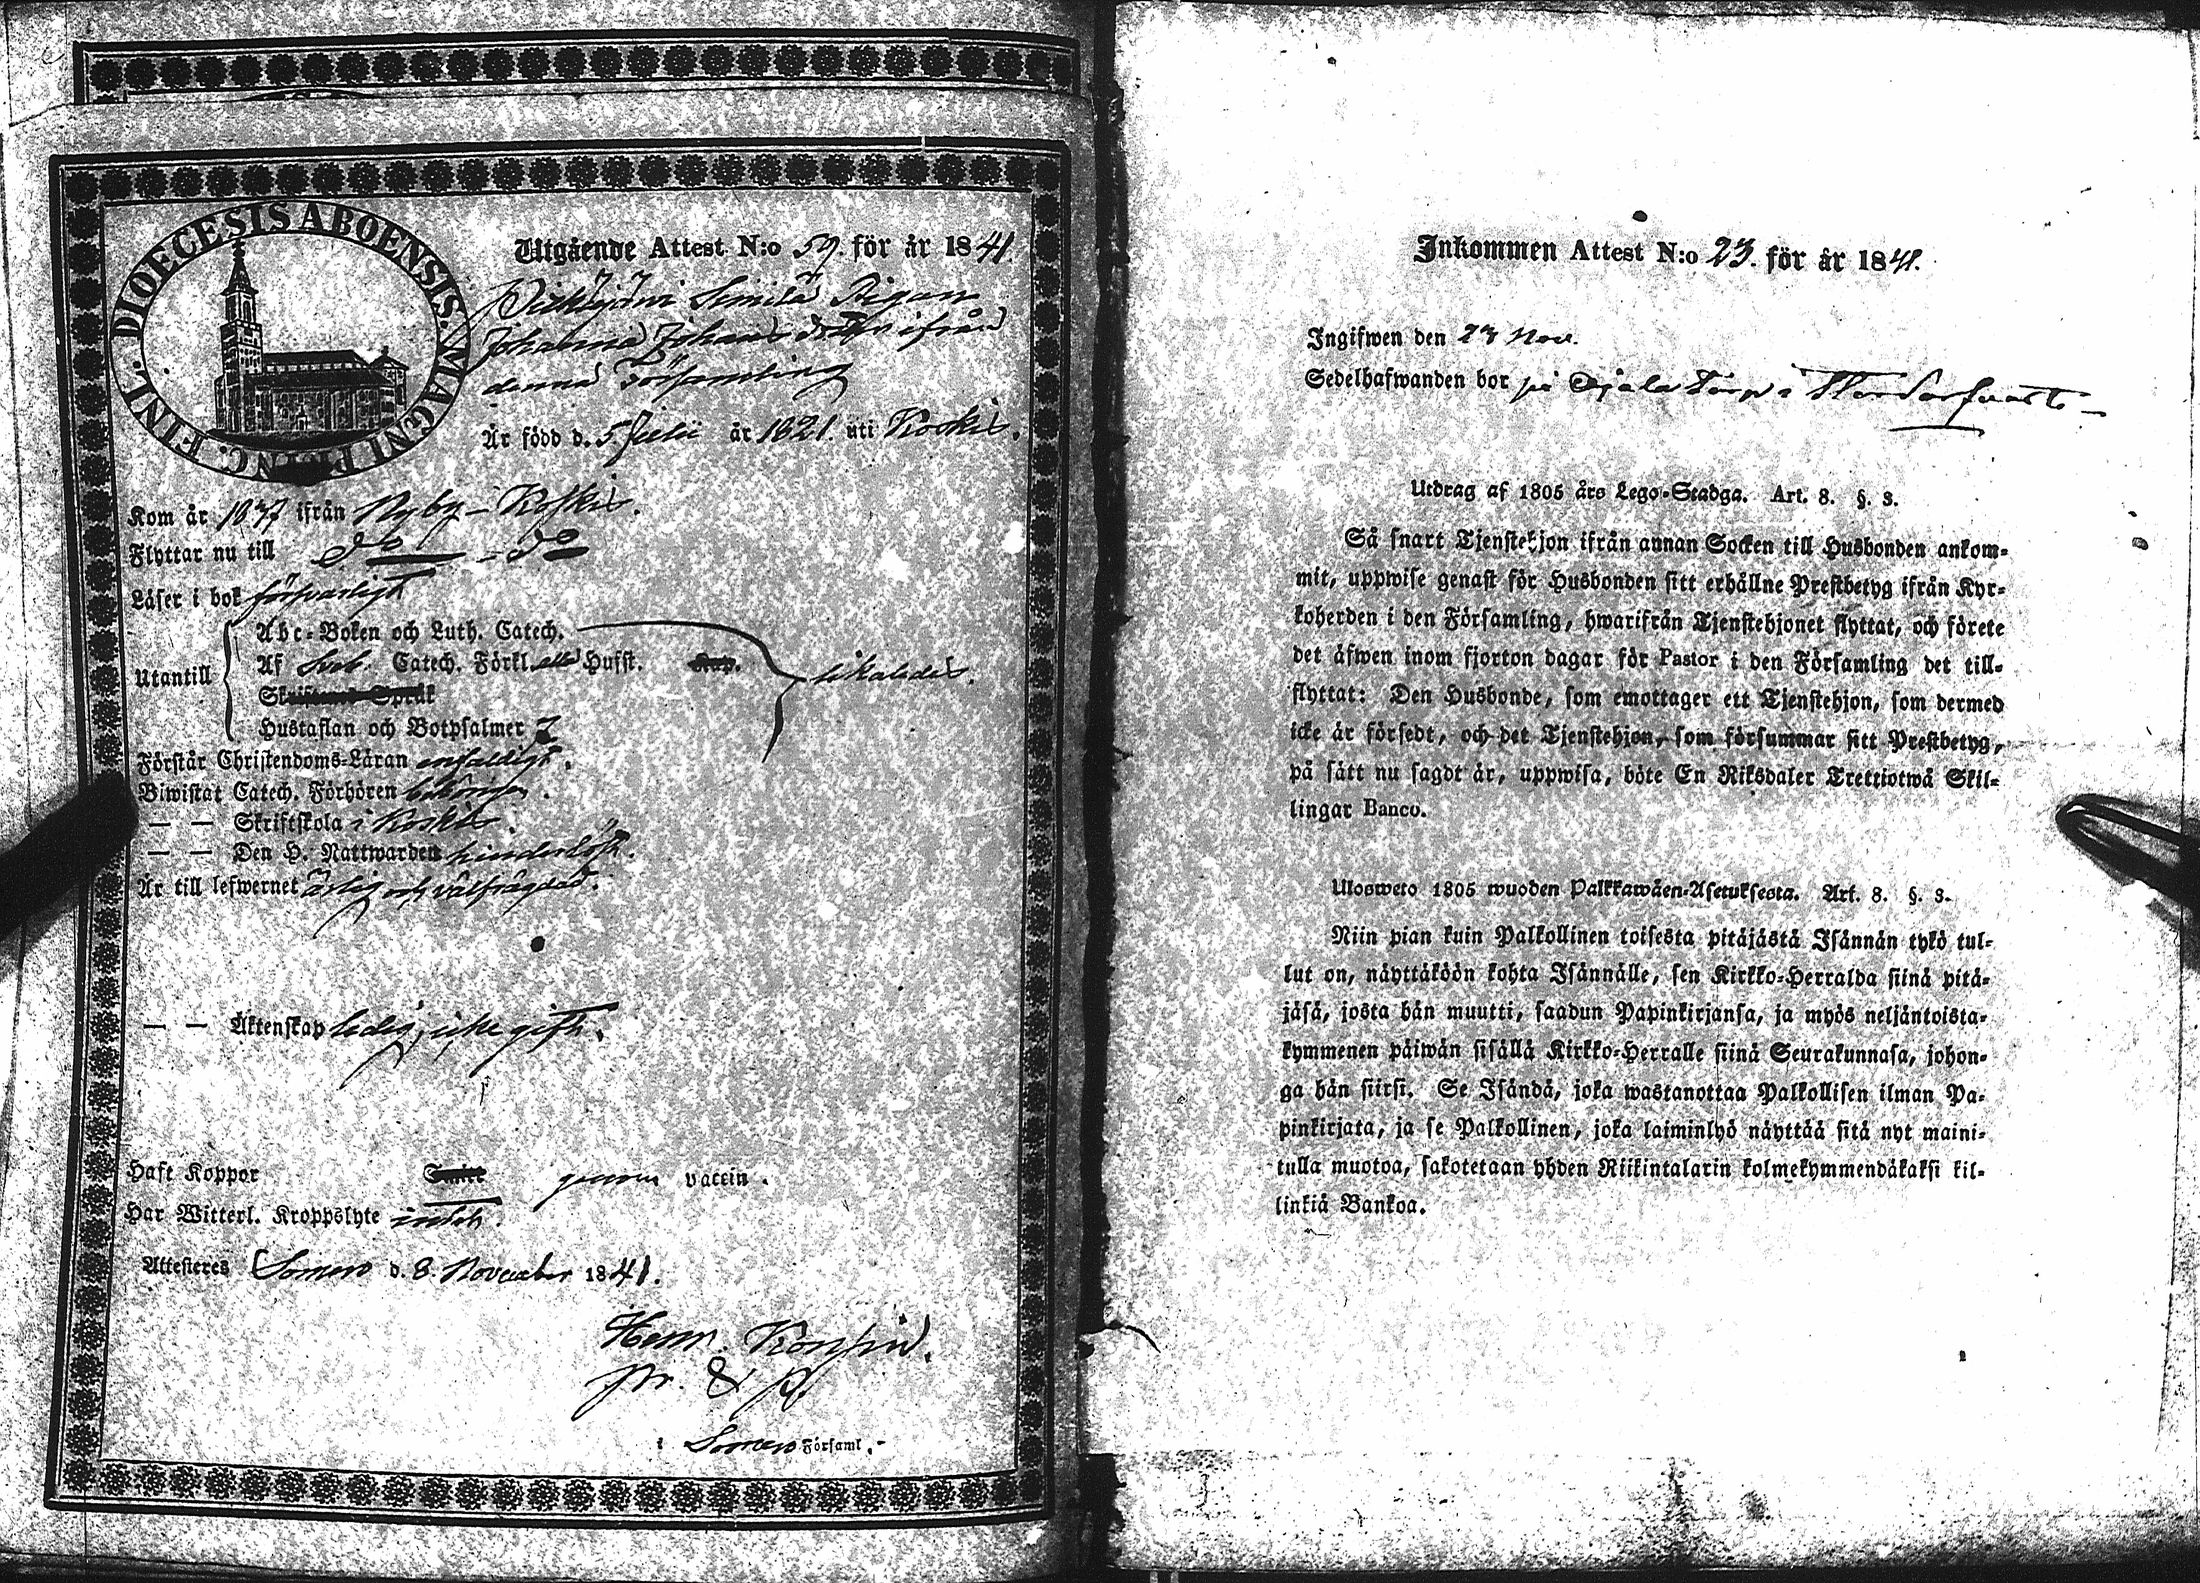 FINL. DIOECESIS ABOENSIS. MAGNI PRINC.
Utgående Attest N:o 59. för år 1841.
Pigan
Johanna Johansdotter ifrån
denna Församling
Är född d. 5 Julii år 1821. uti Koskis.
Kom år 1837 ifrån Nyby - Koskis.
Flyttar nu till do - do
Läser i bok försvarligt
Utantill
Abc-Boken och Luth. Catech.
Af Sveb. Catech. Förkl. alla Hufst. Kap.
likaledes.
Skriftenes Språk
Hustaflan och Botpsalmer 7
Förstår Christendoms-Läran enfaldigt.
Biwistat Catech. Förhören behörigen.
— — Skriftskola i Koskis.
— — Den H. Nattwarden hinderlöst.
Är till lefwernet ärlig och välfrägdad.
— — Äktenskap ledig, icke gift.
Haft Koppor Smitt genom vaccin.
Har Witterl. Kroppslyte intet.
Attesteres Somero d. 8. November 1841.
Henr.
pr. & P.
i Somero Församl.
Inkommen Attest N:o 23. för år 1841.
Ingifwen den 23 Nov.
Sedelhafwanden bor på torp i
Utdrag af 1805 års Lego-Stadga. Art. 8. §. 3.
Så snart Tjenstehjon ifrån annan Socken till Husbonden ankom-
mit, uppwise genast för Husbonden sitt erhållne Prestbetyg ifrån Kyr-
koherden i den Församling, hwarifrån Tjenstehjonet flyttat, och förete
det äfwen inom fjorton dagar för Pastor i den Församling det till-
flyttat: Den Husbonde, som emottager ett Tjenstehjon, som dermed
icke är försedt, och det Tjenstehjon, som försummar sitt Prestbetyg,
på sätt nu sagdt är, uppwisa, böte En Riksdaler Trettiotwå Skil-
lingar Banco.
Ulosweto 1805 wuoden Palkkawäen-Asetuksesta. Art. 8. §. 3.
Niin pian kuin Palkollinen toisesta pitäjästä Isännän tykö tul-
lut on, näyttäköön kohta Isännälle, sen Kirkko-Herralda siinä pitä-
jäsä, josta hän muutti, saadun Papinkirjansa, ja myös neljäntoista-
kymmenen päiwän sisällä Kirkko-Herralle siinä Seurakunnasa, johon-
ga hän siirsi. Se Isändä, joka wastanottaa Palkollisen ilman Pa-
pinkirjata, ja se Palkollinen, joka laiminlyö näyttää sitä nyt maini-
tulla muotoa, sakotetaan yhden Riikintalarin kolmekymmendäkaksi kil-
linkiä Bankoa.